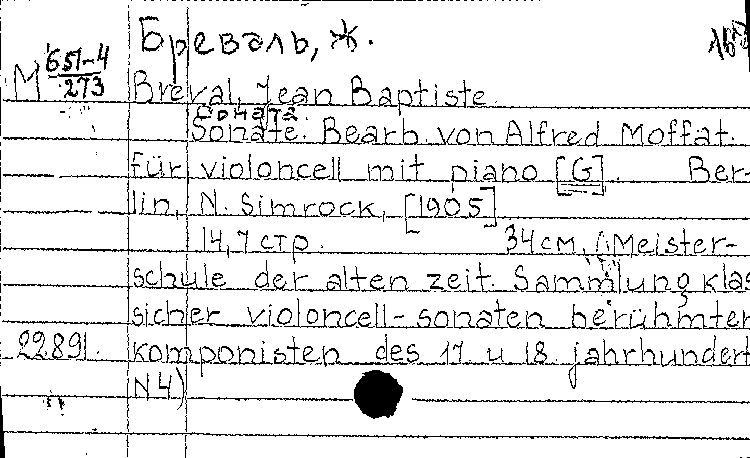 Бреваль, Ж.
M 651-4
273
Breval, Jean Baptiste.
Соната
Sonate. Bearb. von Alfred Moffat.
für violoncell mit piano [G]. Ber-
lin, N. Simrock, [1905]
14,7 стр. 34 см. (Meister-
schule der alten zeit. Sammlung klas
sicher violoncell-sonaten berühmter
22891. komponisten des 17 u 18. jahrhundert
N4)